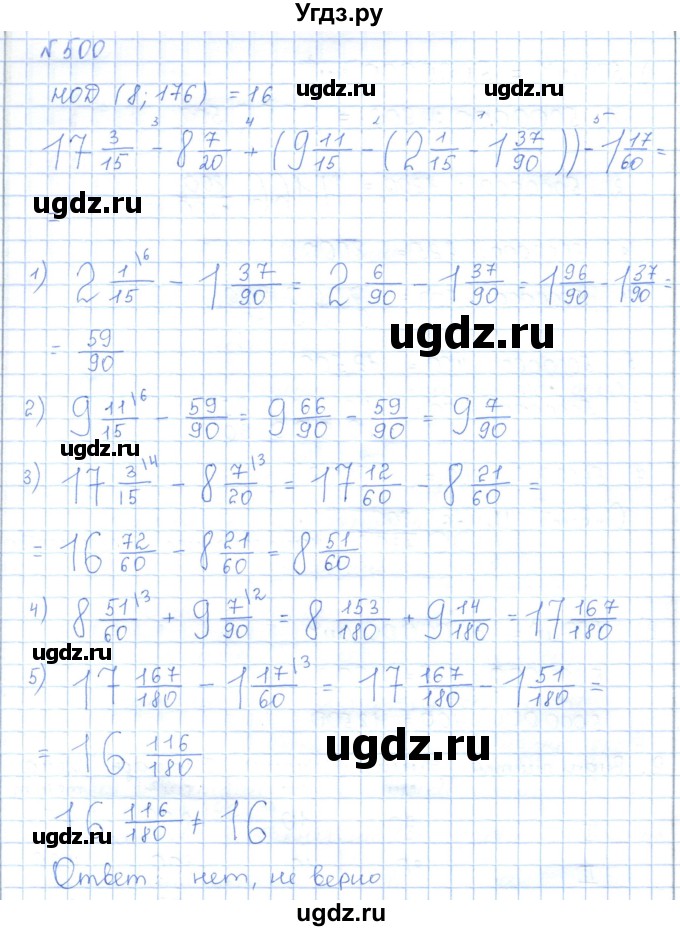 Угдз.ру
№500
НОД (8; 176) = 16
ugdz.ru ugdz.ru
17 3/15 - 8 7/20 + (9 11/15 - (2 1/15 - 1 37/90)) - 1 17/60 =
3 4 2 1 5
ugdz.ru
1) 2 1/15\6 - 1 37/90 = 2 6/90 - 1 37/90 = 1 96/90 - 1 37/90 =
ugdz.ru
= 59/90
2) 9 11/15\6 - 59/90 = 9 66/90 - 59/90 = 9 7/90
ugdz.ru
3) 17 3/15\4 - 8 7/20\3 = 17 12/60 - 8 21/60 =
= 16 72/60 - 8 21/60 = 8 51/60
4) 8 51/60\3 + 9 7/90\2 = 8 153/180 + 9 14/180 = 17 167/180
ugdz.ru
5) 17 167/180 - 1 17/60\3 = 17 167/180 - 1 51/180 =
= 16 116/180
ugdz.ru
16 116/180 ≠ 16
ugdz.ru
Ответ: нет, не верно
ugdz.ru